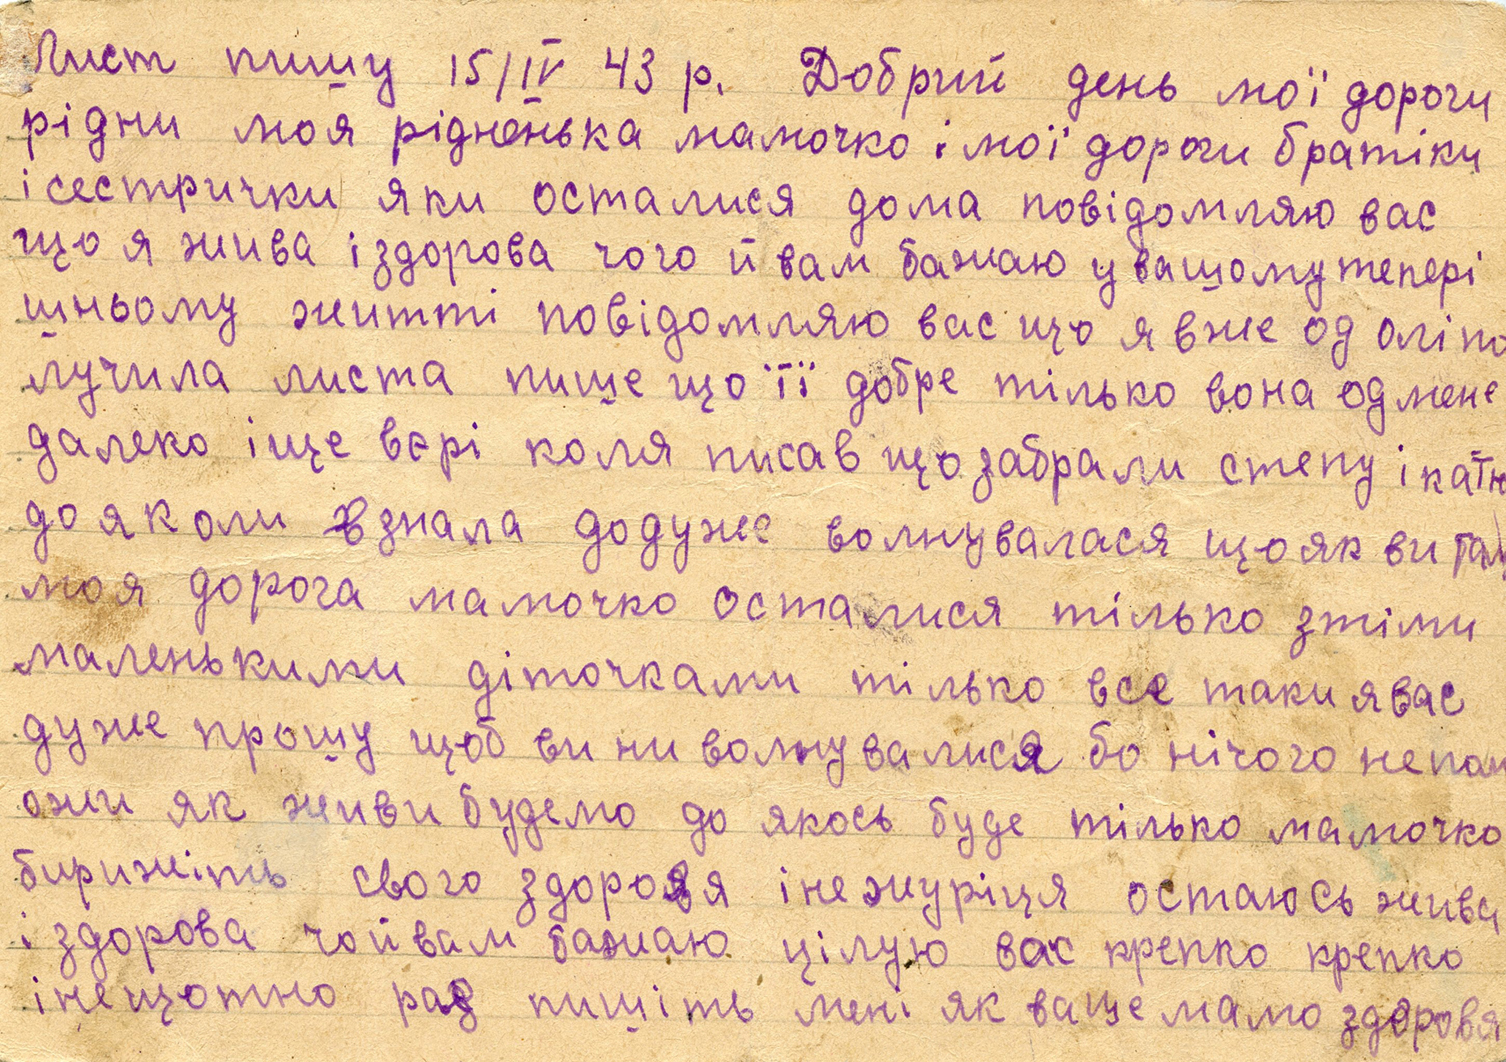 Лист пишу 15/IV 43 р. Добрий день мої дороги
рідни моя рідненька мамочко і мої дороги братіки
і сестрички яки осталися дома повідомляю вас
що я жива і здорова чого й вам бажаю у вашому тепері
шньому житті повідомляю вас що я вже од олі по
лучила листа пише що її добре тілько вона од мене
далеко іще вєрі коля писав що забрали степу і катю
до як оли взнала до дуже волнувалася що як ви там
моя дорога мамочко осталися тілько з тіми
маленькими діточками тілько все таки я вас
дуже прошу щоб ви ни волнувалися бо нічого непом
ожи як живи будемо до якось буде тілько мамочко
бирижіть свого здоровя і не журіця остаюсь жива
і здорова чо й вам бажаю цілую вас крепко крепко
і нещотно раз пишіть мені як ваше мамо здоровя